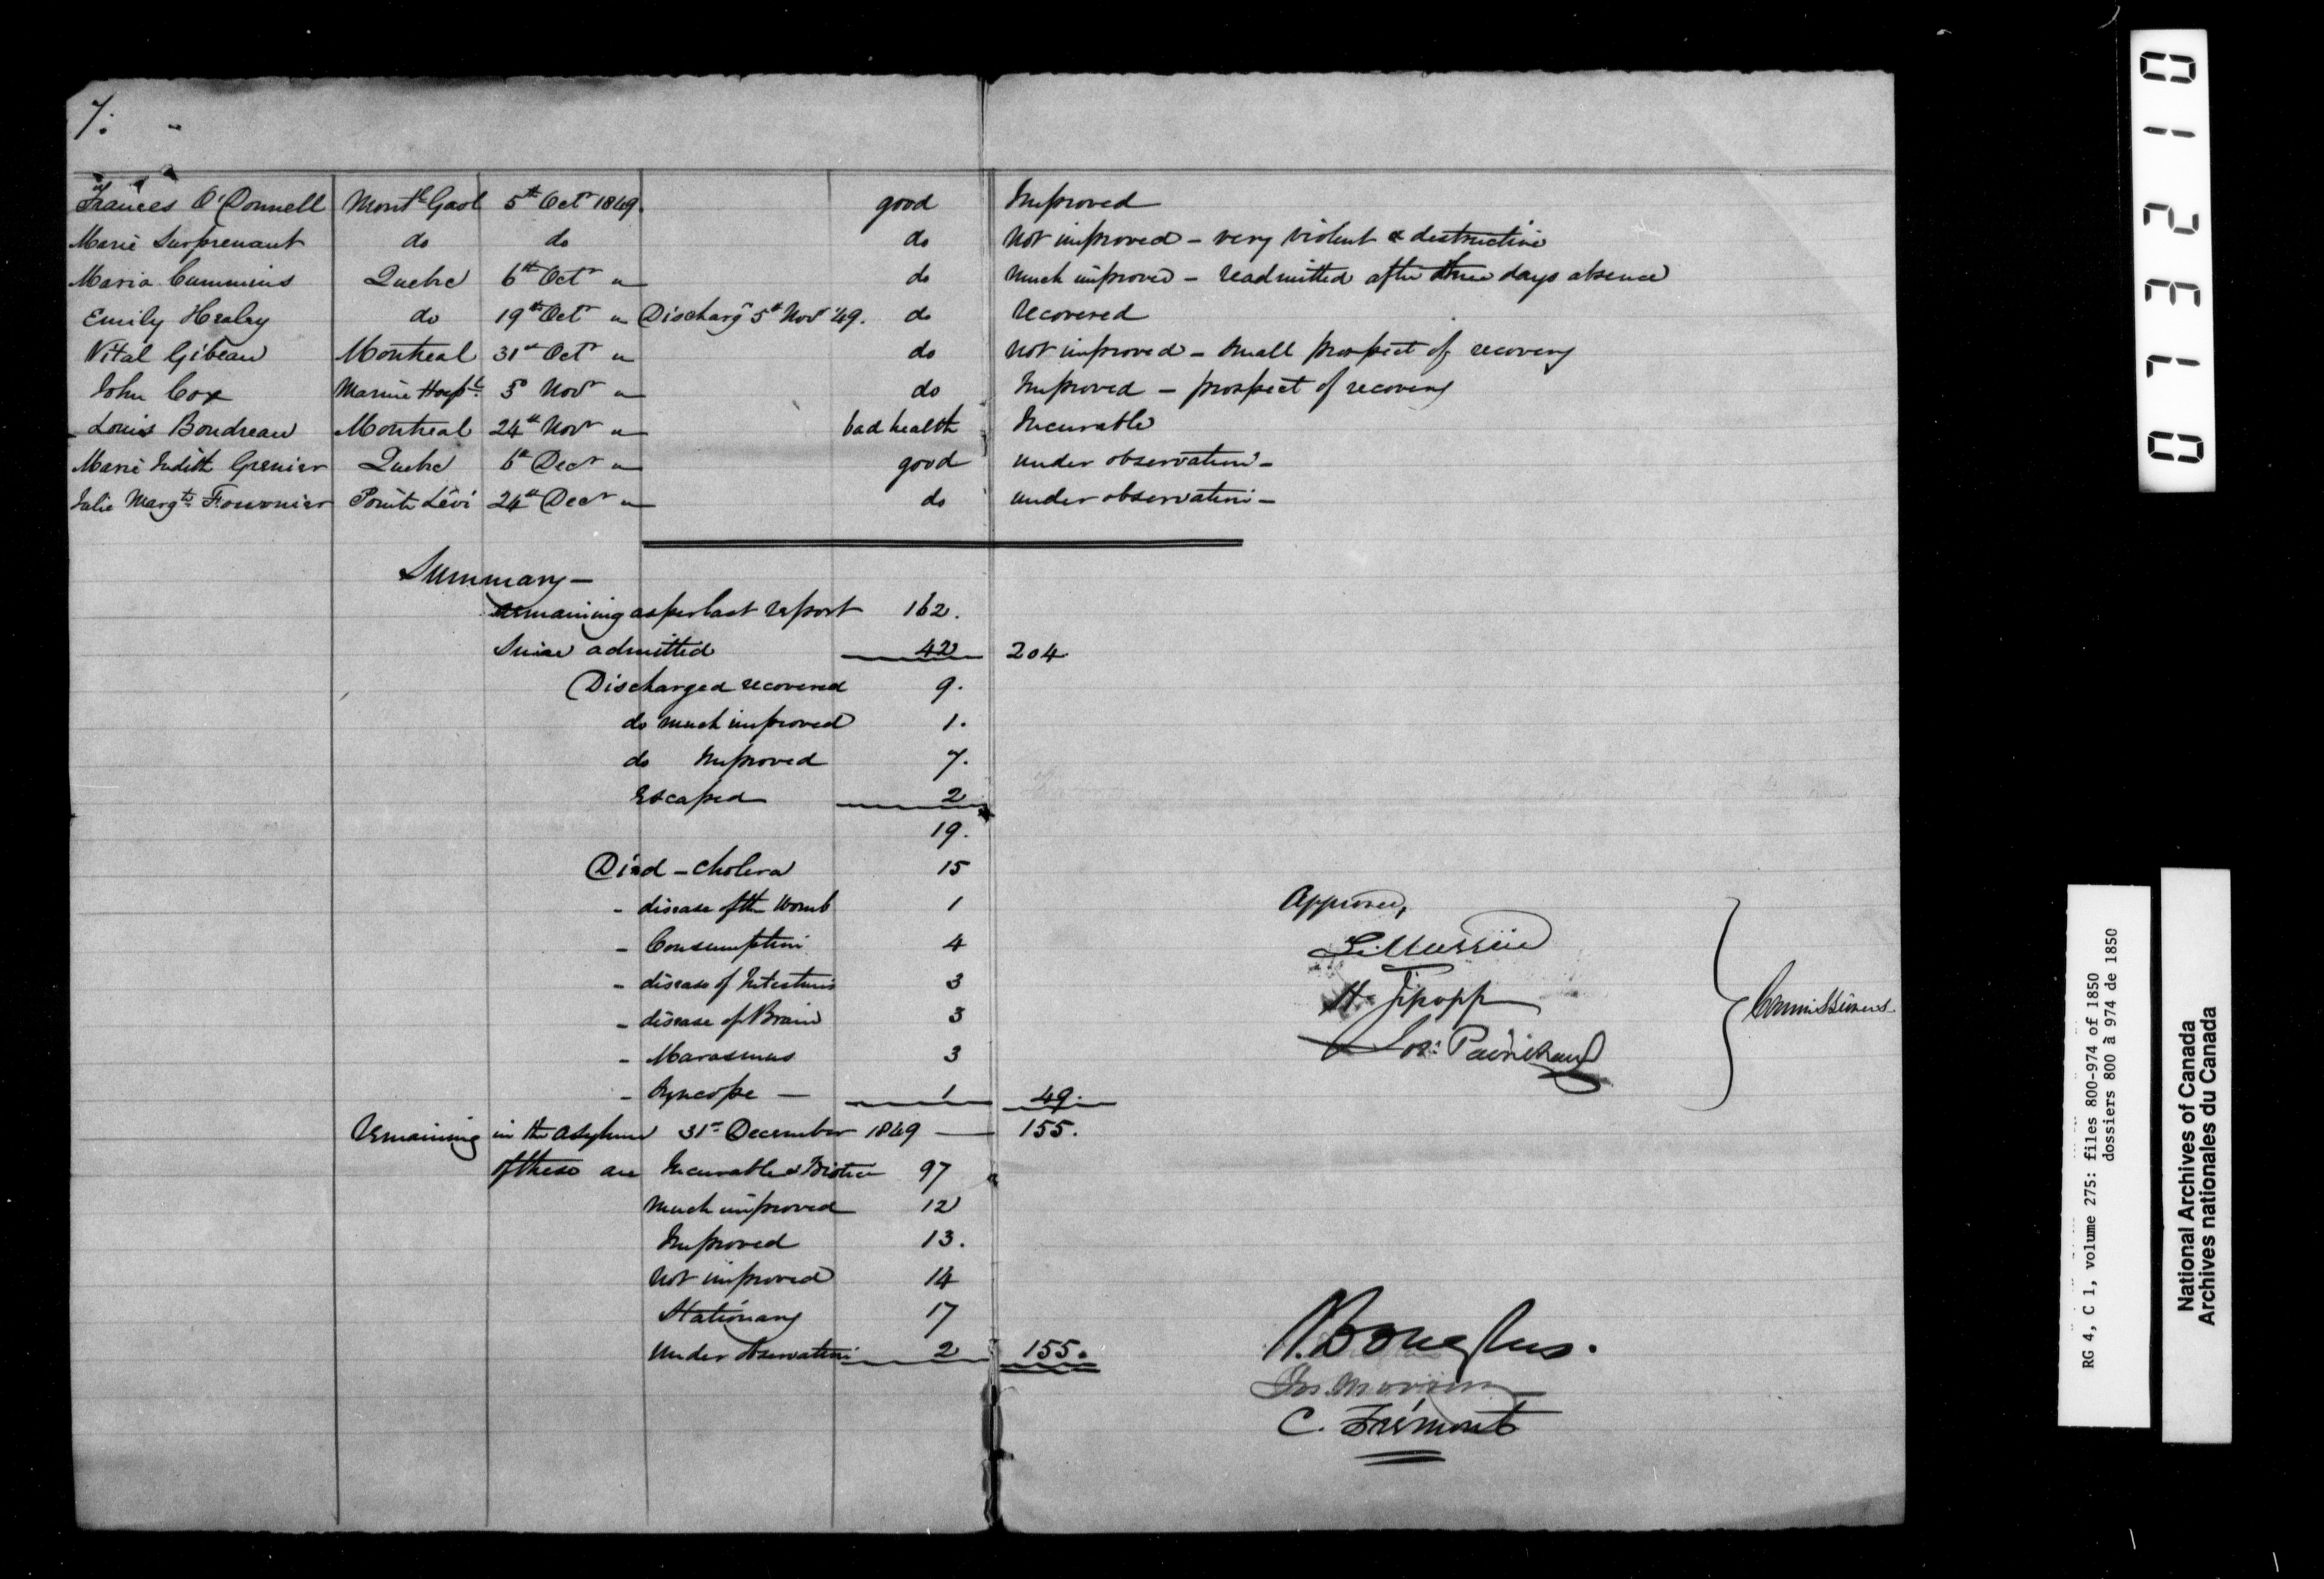 7.
Frances O'Donnell Mont^l Gaol 5th Oct^r 1849. good Improved
Marie Surprenant do do do Not improved - very violent & destructive
Maria Cummins Quebec 6th Oct^r " do Much improved - readmitted after three days absence
Emily Healey do 19th Oct^r " Discharg^d 5th Nov^r '49. do Recovered
Vital Gibeau Montreal 31st Oct^r " do Not improved - small prospect of recovery
John Cox Marine Hosp^l 3^d Nov^r " do Improved - prospect of recovery
Louis Boudreau Montreal 24th Nov^r " bad health Incurable
Marie Judith Grenier Quebec 6th Dec^r " good under observation -
Julie Marg^te Fournier Pointe Lévi 24th Dec^r " do under observation -
Summary -
Remaining as per last report 162.
Since admitted 42 204
Discharged recovered 9.
do much improved 1.
do Improved 7.
Escaped 2
19.
Died - Cholera 15
- disease of the Womb 1
- Consumption 4
- disease of Intestines 3
- disease of Brain 3
- Marasmus 3
- Syncope - 1 49.
Remaining in the Asylum 31st December 1849 - 155.
of these are Incurable & Idiotic 97
Much improved 12
Improved 13.
Not improved 14
Stationary 17
Under observation 2 155.
Approved,
Jos: Painchaud
Commissioners
J. Douglas.
Jos. Morrin
C. Frémont
013210
RG 4, C 1, volume 275: files 800-974 of 1850
dossiers 800 à 974 de 1850
National Archives of Canada
Archives nationales du Canada